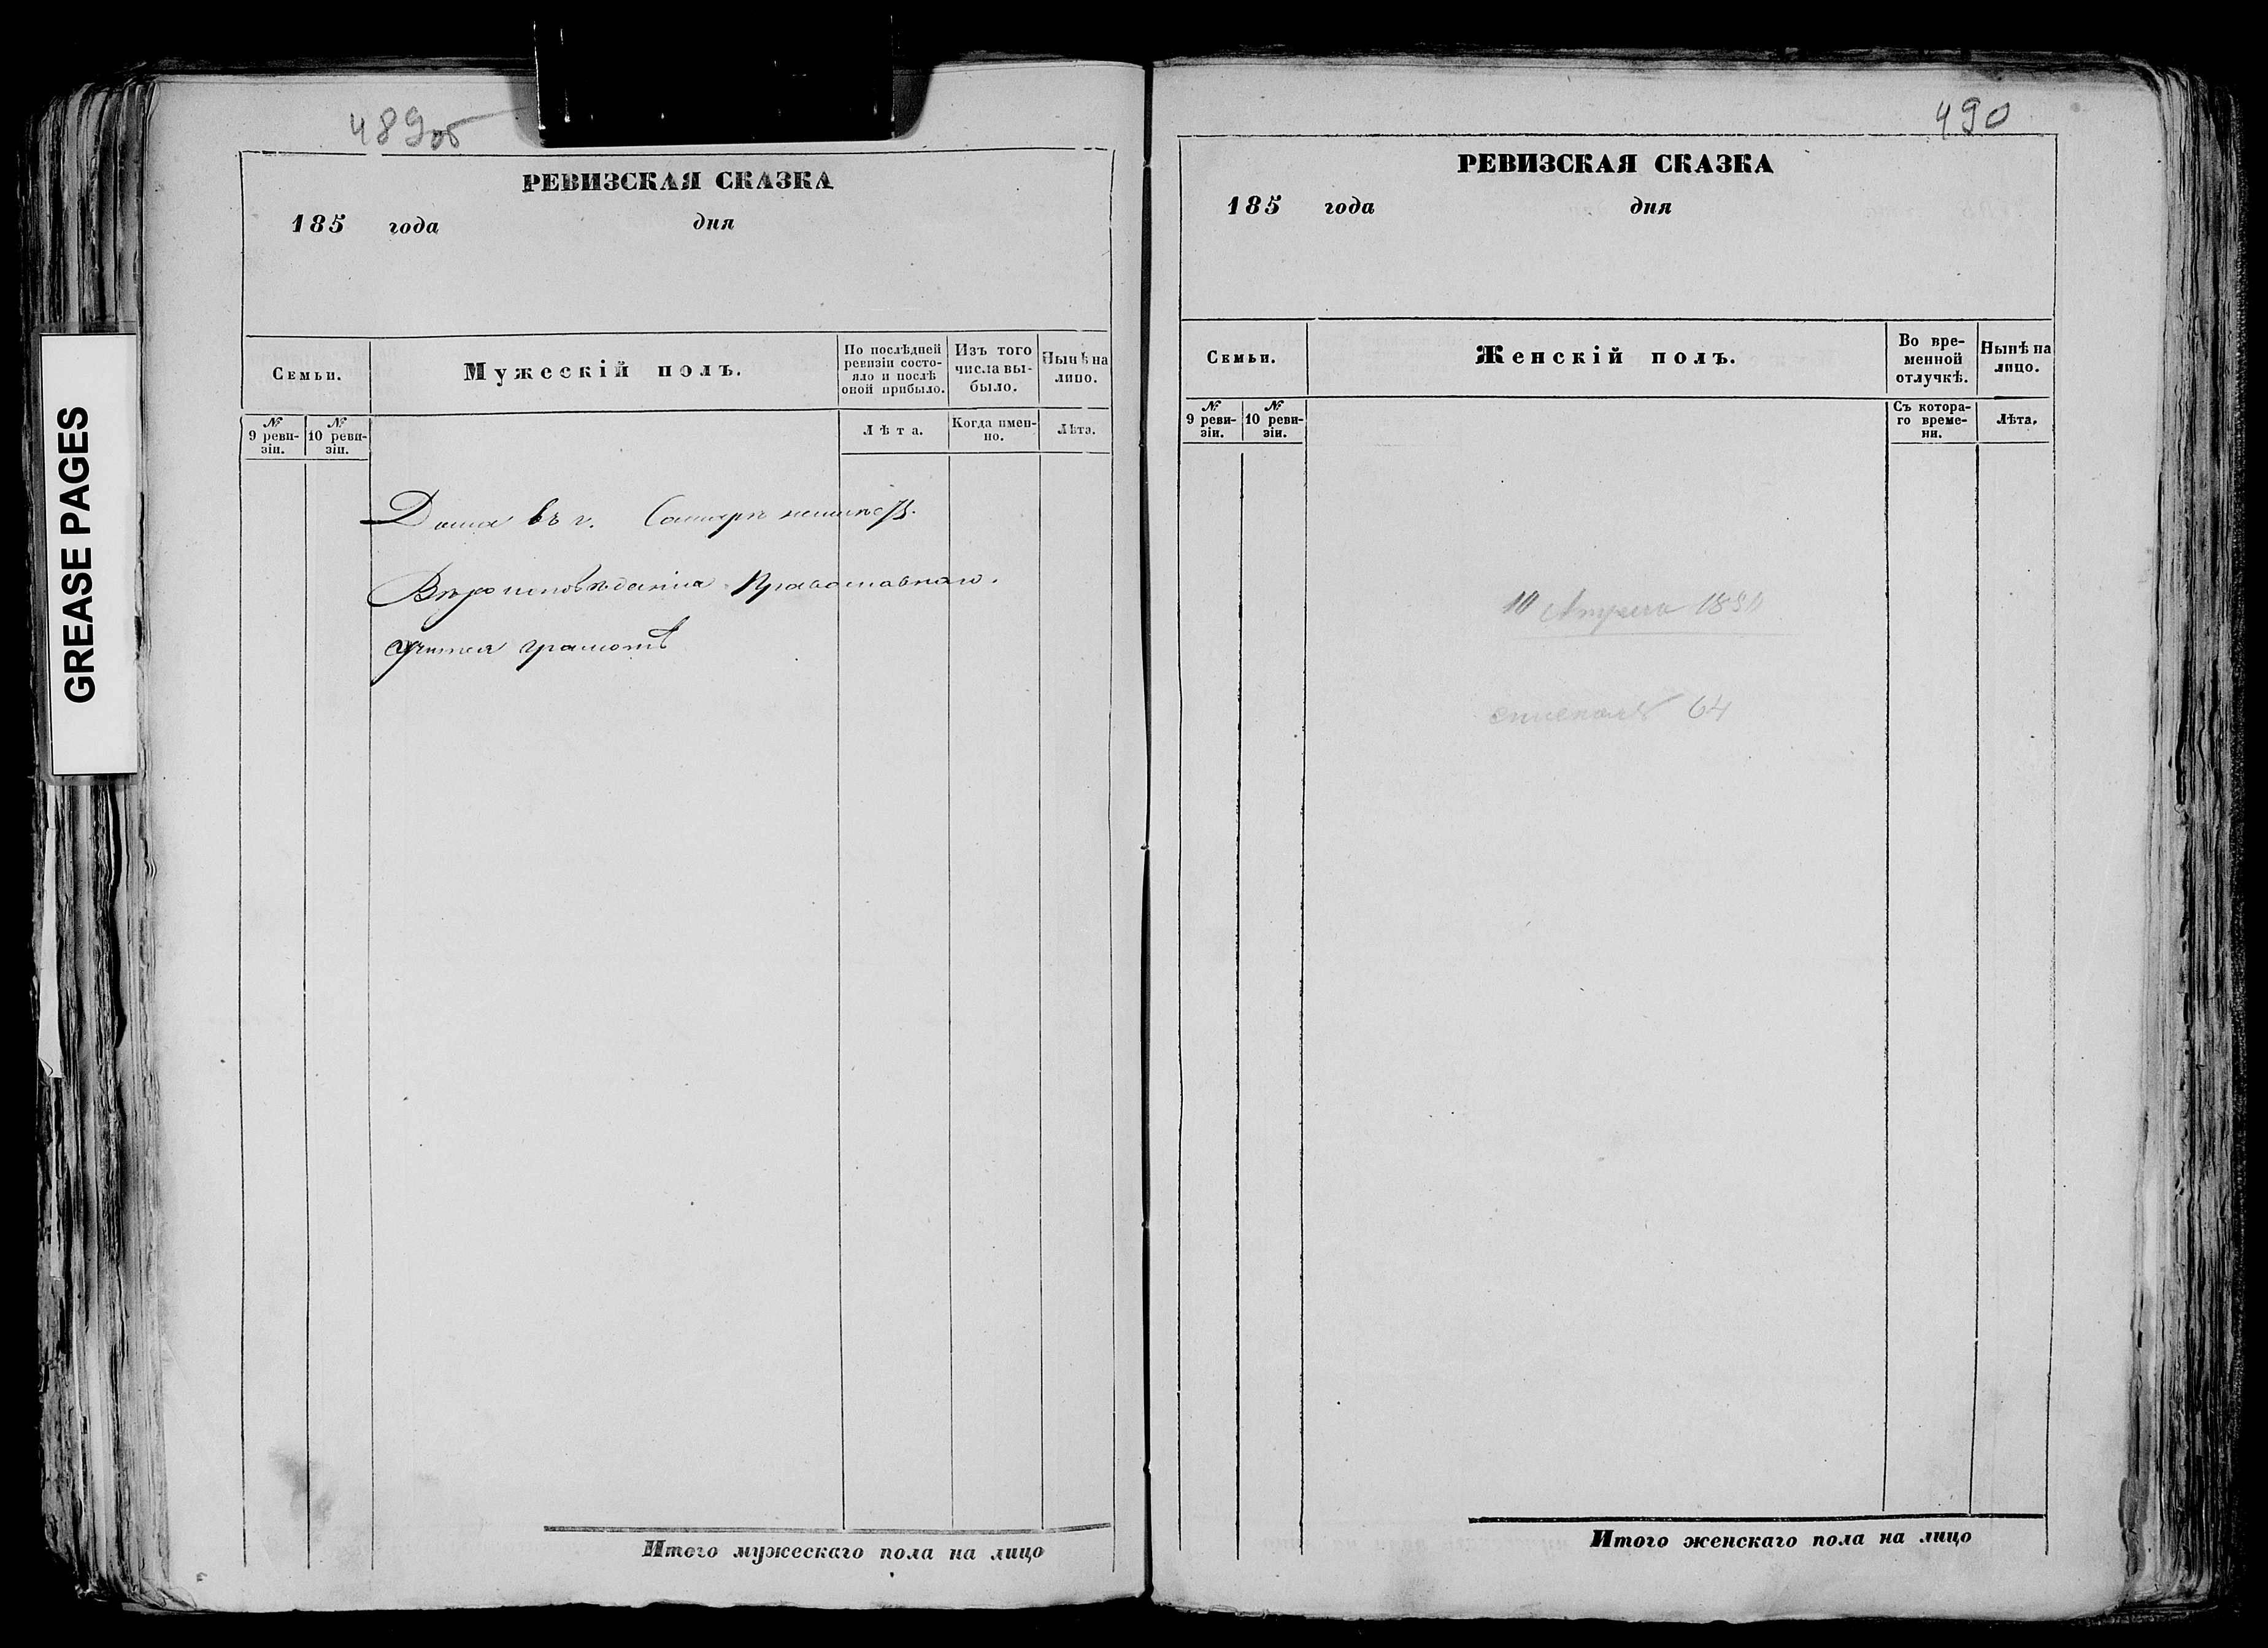 GREASE PAGES
489об
РЕВИЗСКАЯ СКАЗКА
185 года дня
Семьи.
Мужескій полъ.
По послѣдней ревизіи состояло и послѣ оной прибыло.
Изъ того числа выбыло.
Нынѣ на лицо.
№ 9 ревизіи.
№ 10 ревизіи.
Лѣта.
Когда именно.
Лѣта.
Дома въ г. Самарѣ
Вѣроисповѣданія Православнаго.
грамотѣ
Итого мужескаго пола на лицо
490
РЕВИЗСКАЯ СКАЗКА
185 года дня
Семьи.
Женскій полъ.
Во временной отлучкѣ.
Нынѣ на лицо.
№ 9 ревизіи.
№ 10 ревизіи.
Съ котораго времени.
Лѣта.
10 Апреля
64
Итого женскаго пола на лицо